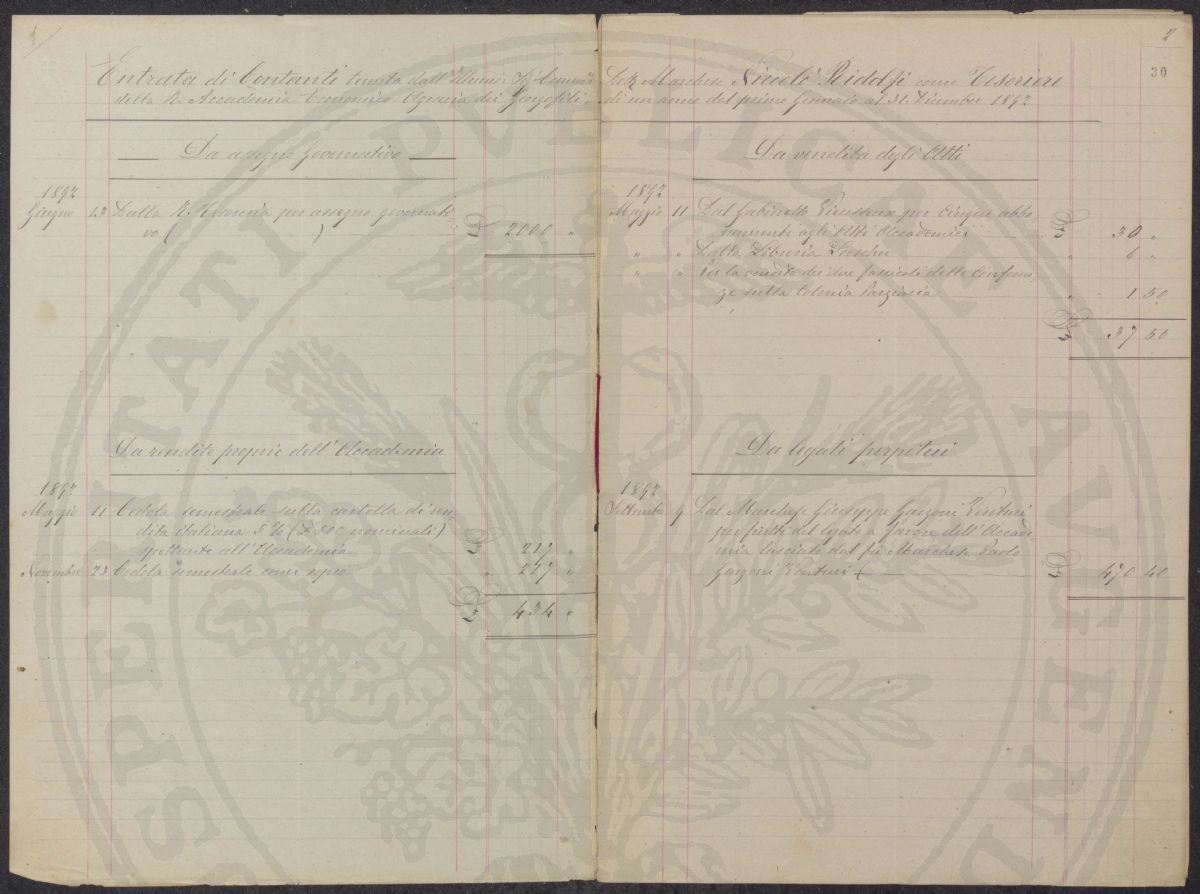 1
Entrata di Contanti tenuta dall' R.
della R. Accademia Economico Agraria dei Georgofili,
Da assegno Governativo
1892
Giugno 13 Dalla R. per assegno governati-
vo ( ) £ 2000 "
Da rendite proprie dell' Accademia
1892
Maggio 11 Cedola semestrale sulla cartella di ren-
dita italiana 5 % (£ 500 nominali)
spettante all' Accademia £ 217 "
Novembre 23 Cedola semestrale come sopra " 217 "
£ 434 "
2
30
Marchese Niccolò Ridolfi come Tesoriere
di un anno dal primo Gennaio al 31. Dicembre 1892
Da vendita degli Atti
1892
Maggio 11 Dal Gabinetto Vieusseux per Cinque abbo-
namenti agli Atti Accademici £ 30 "
" " Dalla Libreria " 6 "
" " Per la vendita dei due fascicoli delle Conferen-
ze sulla Colonia Parziaria " 1 50
£ 37 50
Da legati perpetui
1892
Settembre 9 Dal Marchese Giuseppe Garzoni Venturi
per frutti del legato a favore dell' Accade
mia lasciato dal fu Marchese Paolo
Garzoni Venturi £ 470 40
PROSPERITATI PUBLICAE AUGENDAE